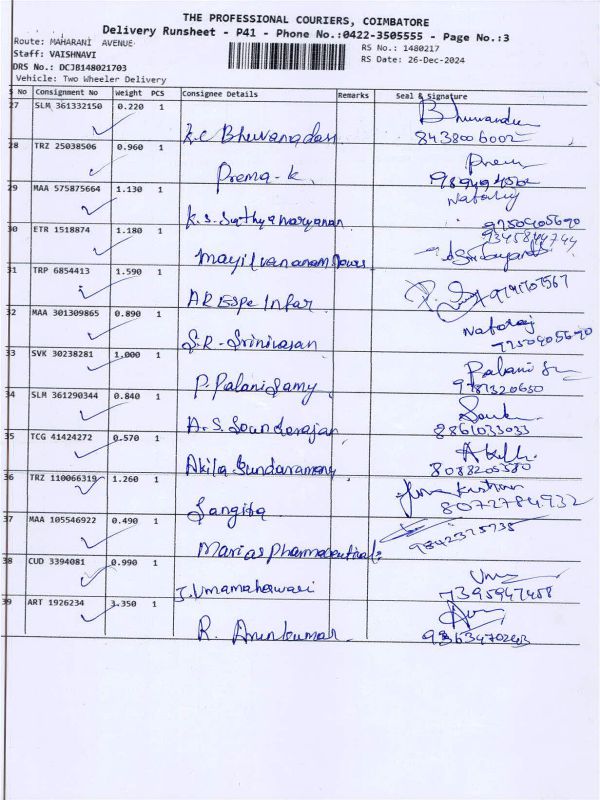 THE PROFESSIONAL COURIERS, COIMBATORE
Delivery Runsheet - P41 - Phone No.:0422-3505555 - Page No.:3
Route: MAHARANI AVENUE
RS No.: 1480217
Staff: VAISHNAVI
RS Date: 26-Dec-2024
DRS No.: DCJB148021703
Vehicle: Two Wheeler Delivery
S No Consignment No Weight PCS Consignee Details Remarks Seal & Signature
27 SLM 361332150 0.220 1 K.C Bhuvanadas 8438006002
28 TRZ 25038506 0.960 1 Prema-K. Prem
29 MAA 575875664 1.130 1 K.S. Sathya narayanan Nataraj 9750905690
30 ETR 1518874 1.180 1
31 TRP 6854413 1.590 1
32 MAA 301309865 0.890 1 S.R-Srinivasan Nataraj
33 SVK 30238281 1.000 1 P. PalaniSamy Palani
34 SLM 361290344 0.840 1 A.S. Sounderajan 8861033033
35 TCG 41424272 0.570 1 Akila Sundaramony 8088205380
36 TRZ 110066319 1.260 1 Sangita 8072784932
37 MAA 105546922 0.490 1 Marias Pharmaceuticals 9842375738
38 CUD 3394081 0.990 1 J. Umamaheswari 7395947458
39 ART 1926234 3.350 1 R. Arunkumar. 9363470243